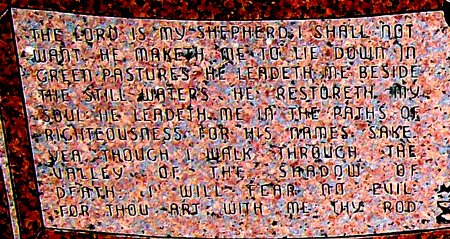 THE LORD IS MY SHEPHERD I SHALL NOT
WANT HE MAKETH ME TO LIE DOWN IN
GREEN PASTURES HE LEADETH ME BESIDE
THE STILL WATERS HE RESTORETH MY
SOUL HE LEADETH ME IN THE PATHS OF
RIGHTEOUSNESS FOR HIS NAMES SAKE
YEA THOUGH I WALK THROUGH THE
VALLEY OF THE SHADOW OF
DEATH I WILL FEAR NO EVIL
FOR THOU ART WITH ME THY ROD